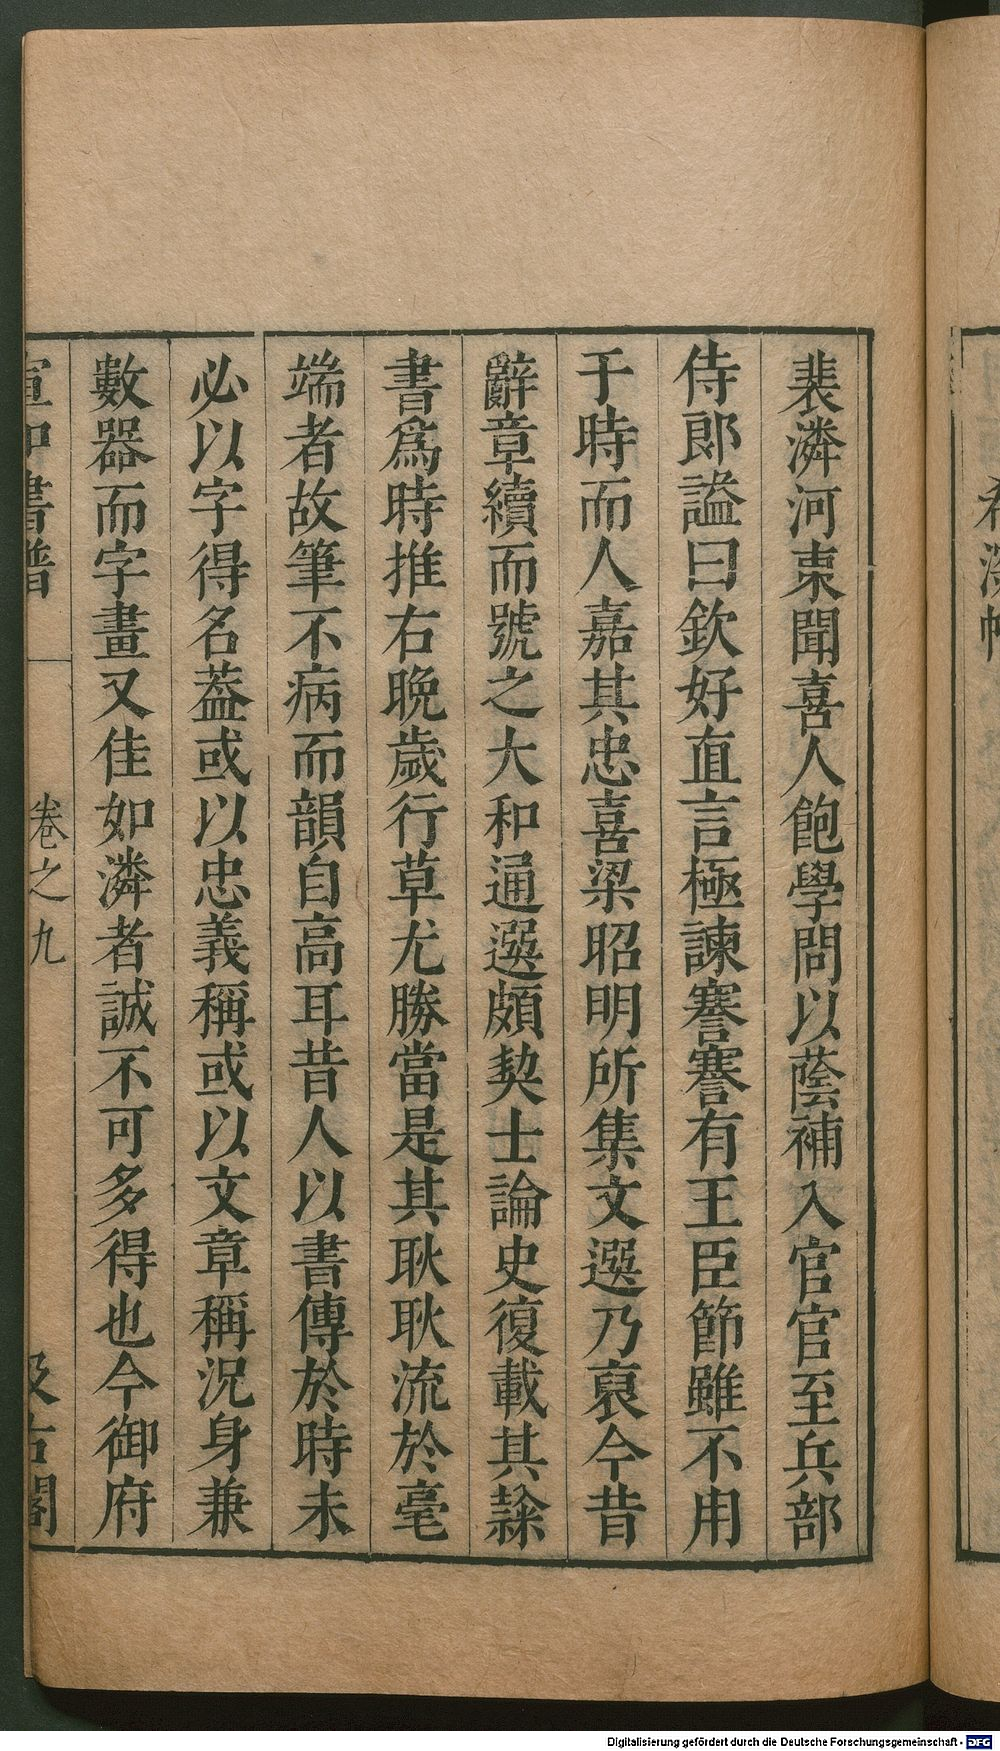 裴潾河東聞喜人飽學問以蔭補入官官至兵部
侍郎謚曰欽好直言極諫謇謇有王臣節雖不用
于時而人嘉其忠喜梁昭明所集文選乃裒今昔
辭章續而號之大和通選頗契士論史復載其隸
書爲時推右晩歲行草尤勝當是其耿耿流於毫
端者故筆不病而韻自高耳昔人以書傳於時未
必以字得名葢或以忠義稱或以文章稱況身兼
數器而字畫又佳如潾者誠不可多得也今御府
宣和書譜 卷之九 汲古閣
Digitalisierung gefördert durch die Deutsche Forschungsgemeinschaft - DFG